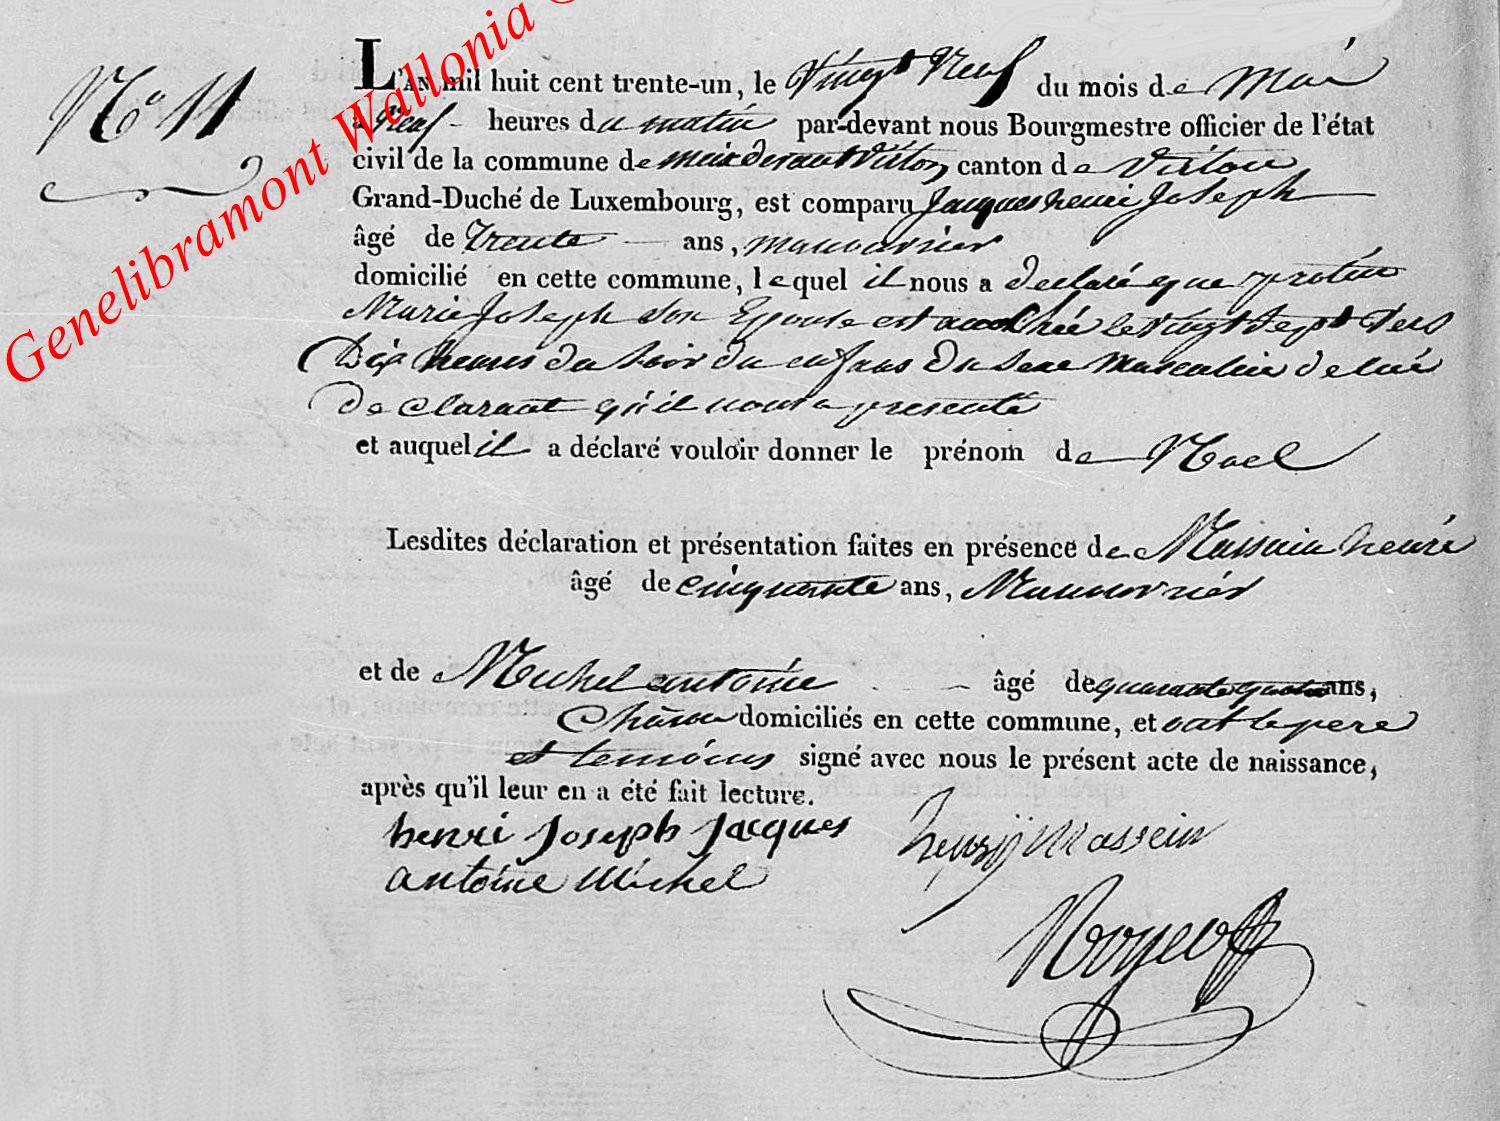 Genelibramont Wallonia
No 11
L'AN mil huit cent trente-un, le Vingt Neuf du mois de Mai
à Neuf heures du matin par-devant nous Bourgmestre officier de l'état
civil de la commune de meix devant Virton canton de Virton
Grand-Duché de Luxembourg, est comparu Jacques henri Joseph
âgé de Trente ans, manouvrier
domicilié en cette commune, lequel il nous a declaré que protin
Marie Joseph son Epouse est accouchée le vingt sept vers
Dix heures du soir du enfans Du sexe masculin de lui
declarant qu'il nous a presenté
et auquel il a déclaré vouloir donner le prénom de Noel
Lesdites déclaration et présentation faites en présence de Massein henri
âgé de cinquante ans, Manouvrier
et de Michel antoine âgé de quarante quatre ans,
domiciliés en cette commune, et ont le pere
et temoins signé avec nous le présent acte de naissance,
après qu'il leur en a été fait lecture.
henri Joseph Jacques henry Massein
antoine Michel